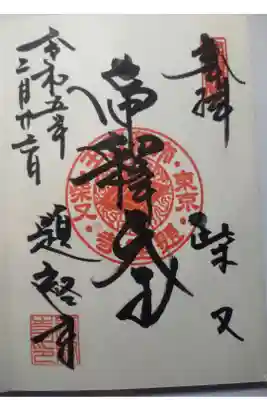 奉拝
柴又
帝釋天
題経寺
令和五年
二月廿二日
東京・柴又